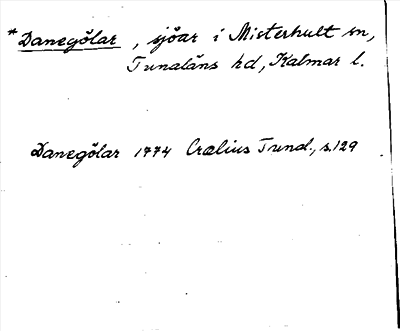 *Danegölar, sjöar i Misterhult sn,
Tunaläns hd, Kalmar l.
Danegölar 1774 Crælius Tunal., s. 129